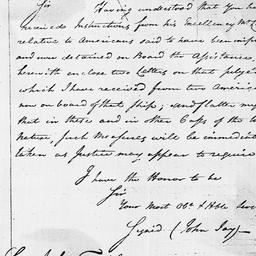 Sir
Having understood that You ha
received Instructions from his Excellency Mr
relative to Americans said to have been imp
and now detained on Board the Assistance,
herewith enclose two Letters on that subject
which I have received from two America
now on board of that Ship; and flatter my
that in these and in other Cases of the
Nature, such Measures will be immediat
taken as Justice may appear to require
I have the Honor to be
Sir
Your Most Obt & Hble Serv
Signed (John Jay)